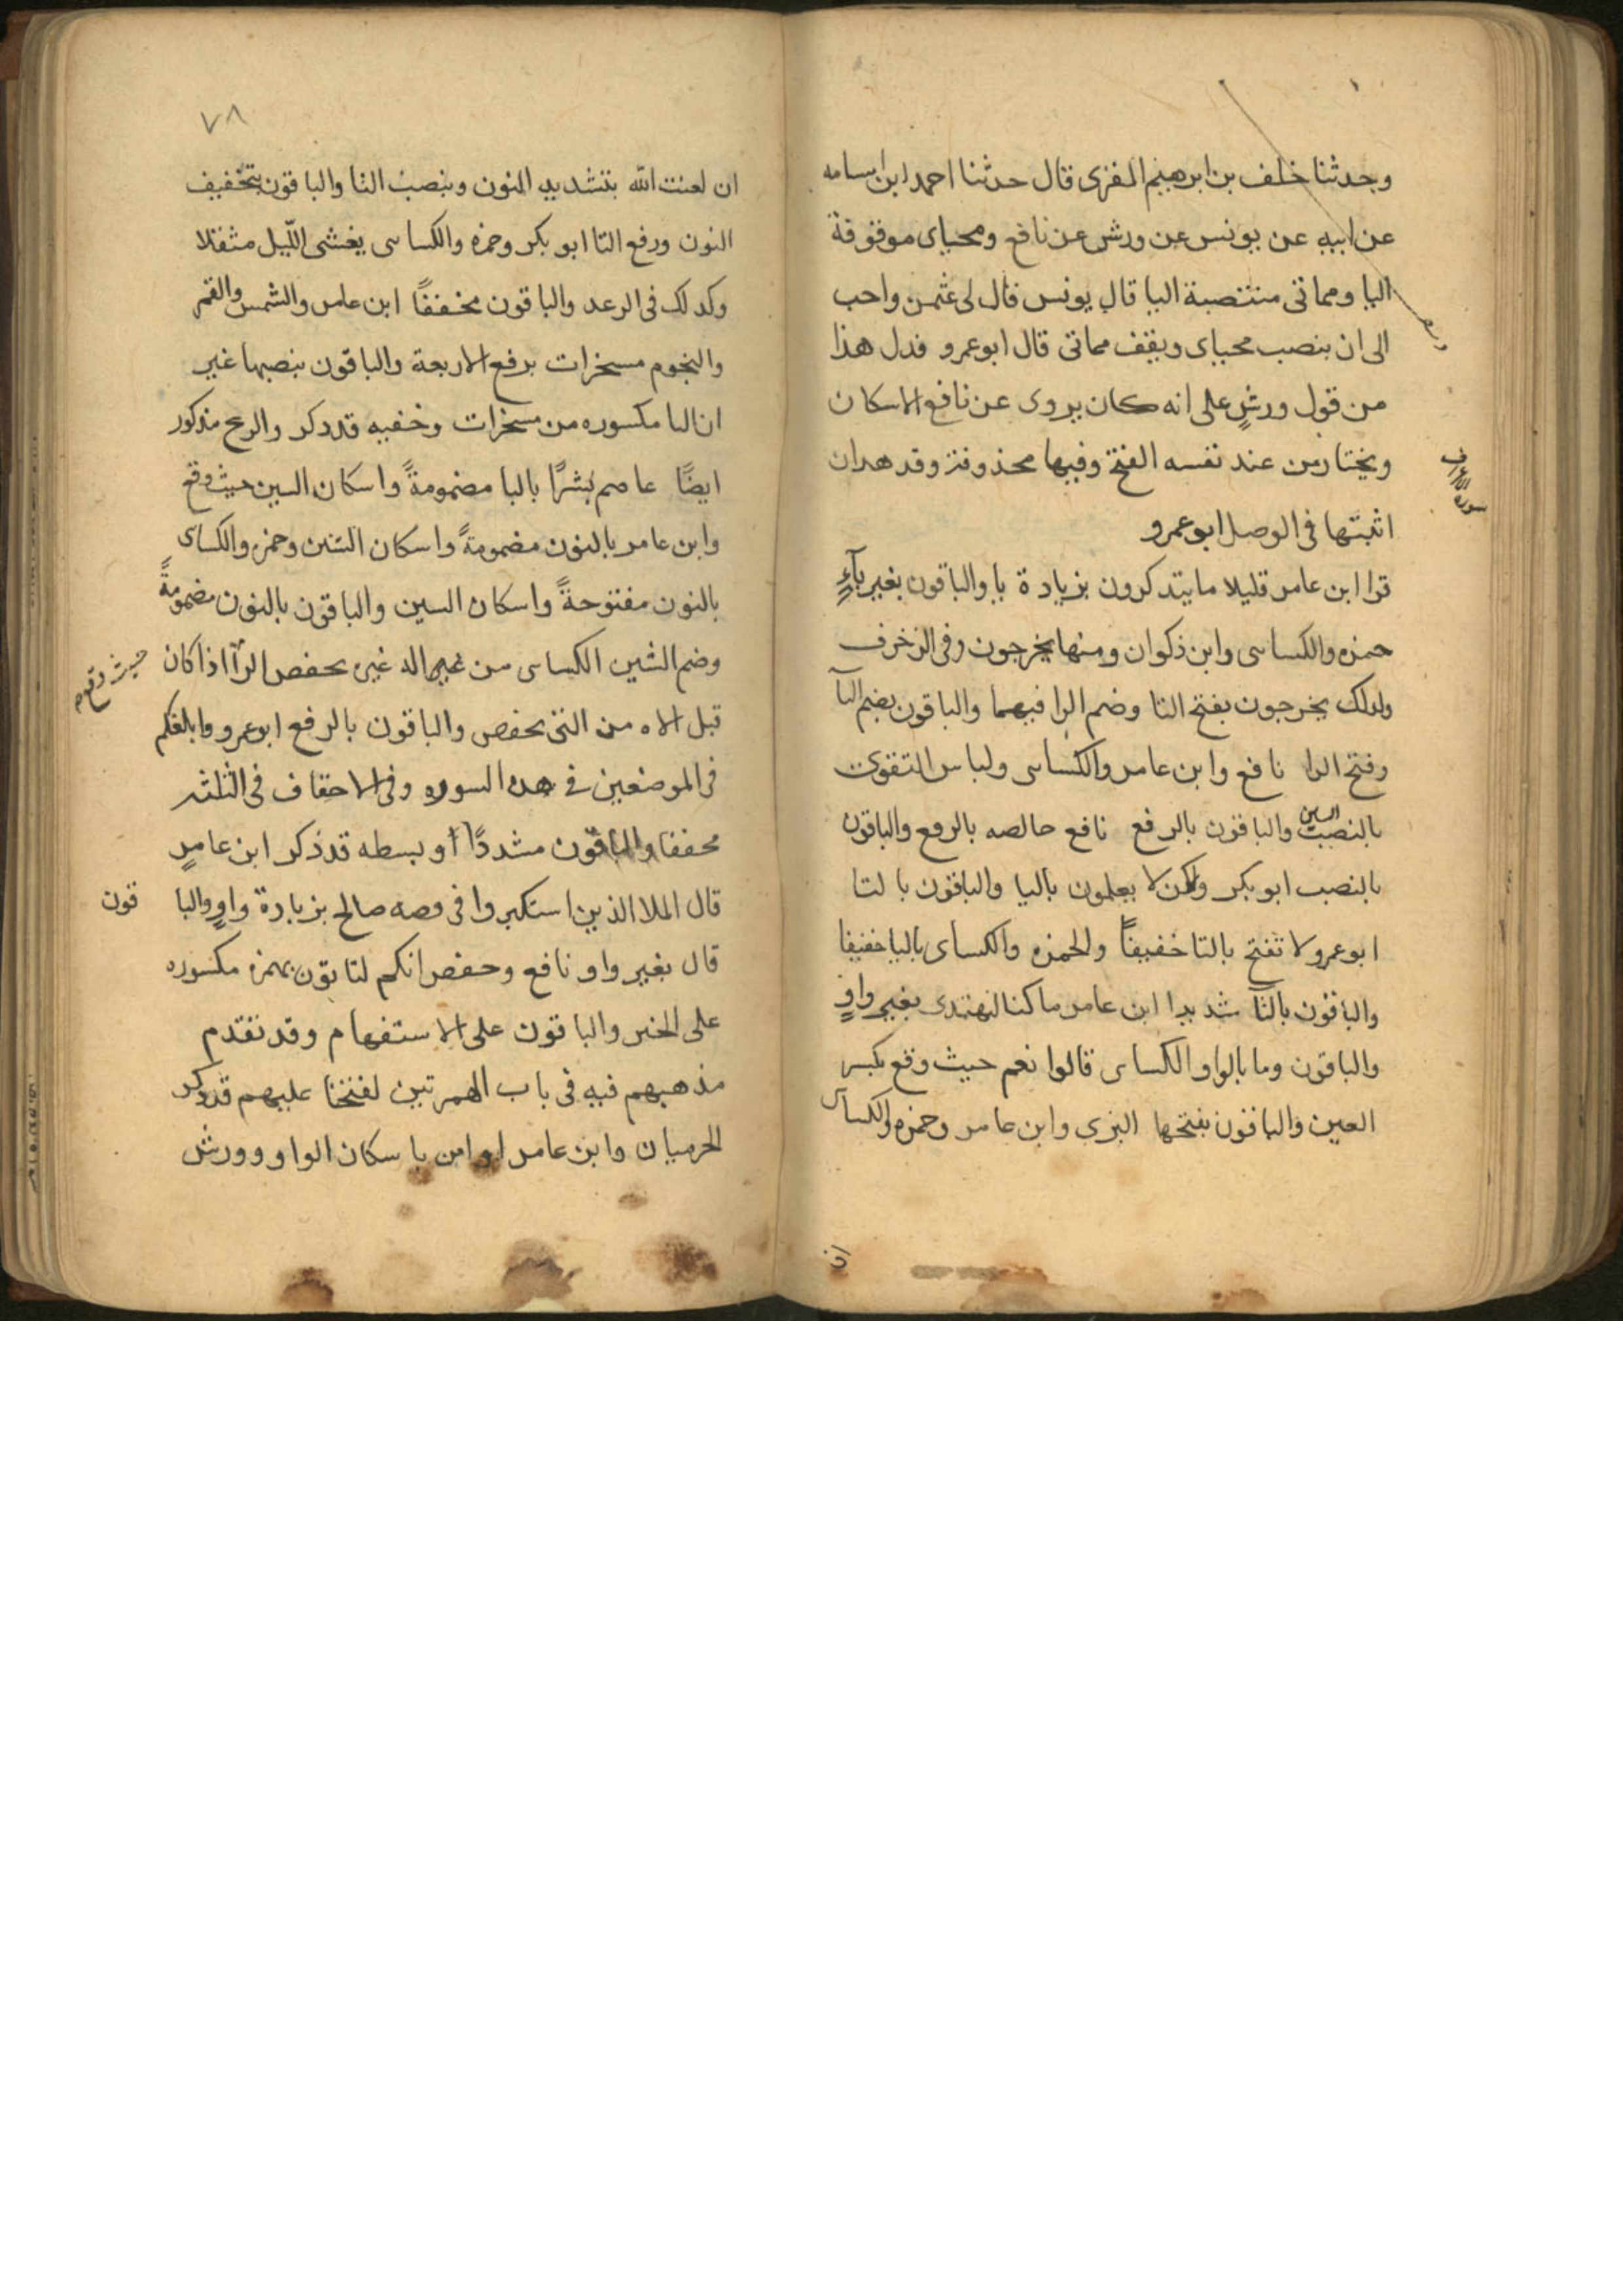 وحدثنا خلف بن ابرهيم المقرى قال حدثنا احمد ابن اسامه
عن ابيه عن يونس عن ورش عن نافع ومحياى موقوفة
اليا ومماتى منتصبة اليا قال يونس قال لى عثمن واحب
الى ان ينصب محياى ويقف مماتى قال ابو عمرو فدل هذا
من قول ورش على انه كان يروى عن نافع الاسكان
ويختار من عند نفسه الفتح وفيها محذوفة وقد هدان
سورة الاعراف
اثبتها فى الوصل ابو عمرو
قرا ابن عامر قليلا ما يتذكرون بزيادة يا والباقون بغير ياءٍ
حمزه والكساى وابن ذكوان ومنها يخرجون وفى الزخرف
ولدلك يخرجون بفتح التا وضم الرا فيهما والباقون بضم التا
وفتح الرا نافع وابن عامر والكساى ولباس التقوى
بالنصب السين والباقون بالرفع نافع خالصه بالرفع والباقون
بالنصب ابو بكر ولكن لا يعلمون باليا والباقون بالتا
ابو عمرو لا تفتح بالتا خفيفاً والحمزه والكساى باليا خفيفا
والباقون بالتا شديدا ابن عامر ما كنا لنهتدى بغير واوٍ
والباقون وما بالواو الكساى قالوا نعم حيث وقع بكسر
العين والباقون بفتحها البزى وابن عامر وحمزه والكساى
ان
٧٨
ان لعنت الله بتشديد النون وبنصب التا والباقون بتخفيف
النون ورفع التا ابو بكر وحمزه والكساى يغشى الليل مثقلا
وكدلك فى الرعد والباقون مخففاً ابن عامر والشمس والقمر
والنجوم مسخرات برفع الاربعة والباقون بنصبها غير
ان التا مكسوره من مسخرات وخفيه قد دكر والريح مذكور
ايضًا عاصم بُشرًا بالبا مضمومةً واسكان السين حيث وقع
وابن عامر بالنون مضمومةً واسكان الشين وحمزه والكساى
بالنون مفتوحةً واسكان السين والباقون بالنون مضمومةً
وضم الشين الكساى من اله غيره بخفض الرا اذا كان
حيث وقع
قبل الاه من التى بخفض والباقون بالرفع ابو عمرو وابلغكم
فى الموضعين فى هده السوره وفى الاحقاف فى الثلثه
مخففا والباقون مشددًا او بسطه قد ذكر ابن عامرٍ
قال الملا الذين استكبروا فى قصه صالح بزيادة واوٍ والبا
قون
قال بغير واو نافع وحفص انكم لتاتون بهمزه مكسوره
على الخبر والباقون على الاستفهام وقد تقدم
مذهبهم فيه فى باب الهمزتين لفتحنا عليهم قد دكر
الحرميان وابن عامر او امن باسكان الواو وورش